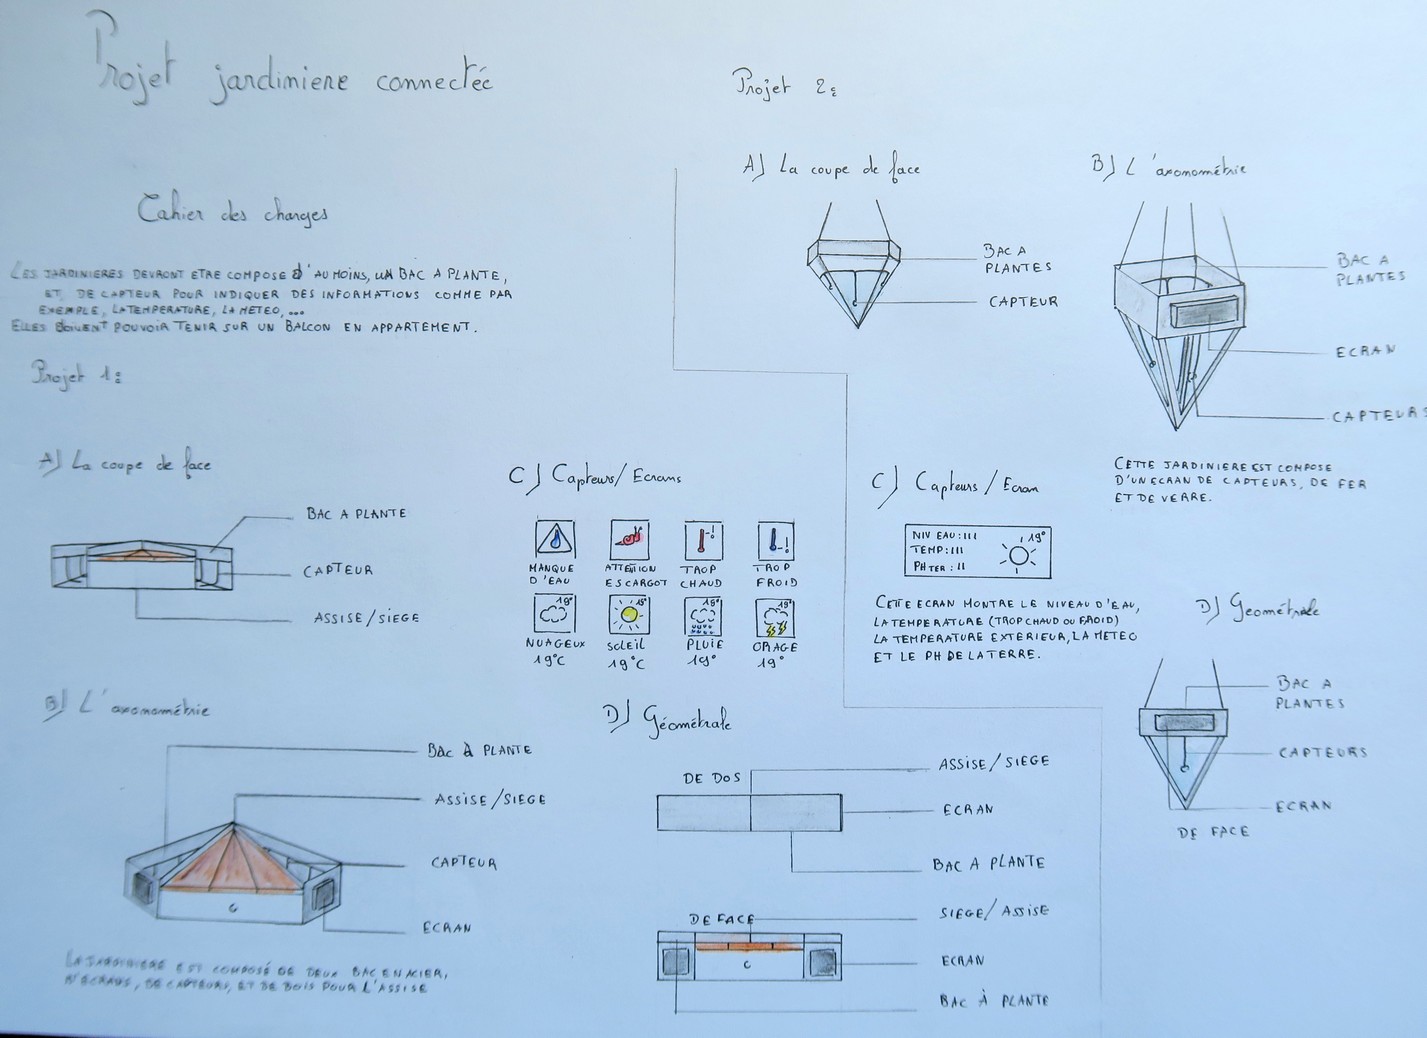 Projet jardiniere connectée
Cahier des charges
LES JARDINIERES DEVRONT ETRE COMPOSE D'AU MOINS, UN BAC A PLANTE,
ET DE CAPTEUR POUR INDIQUER DES INFORMATIONS COMME PAR
EXEMPLE, LA TEMPERATURE, LA METEO, ...
ELLES DOIVENT POUVOIR TENIR SUR UN BALCON EN APPARTEMENT.
Projet 1:
A) La coupe de face
BAC A PLANTE
CAPTEUR
ASSISE/SIEGE
B) L'axonométrie
BAC À PLANTE
ASSISE/SIEGE
CAPTEUR
ECRAN
C
LA JARDINIERE EST COMPOSÉ DE DEUX BAC EN ACIER,
D'ECRANS, DE CAPTEURS, ET DE BOIS POUR L'ASSISE
C) Capteurs/Ecrans
MANQUE
D'EAU
ATTENTION
ESCARGOT
!
TROP
CHAUD
!
TROP
FROID
19°
NUAGEUX
19°C
19°
SOLEIL
19°C
19°
PLUIE
19°
19°
ORAGE
19°
D) Géométrale
DE DOS
ASSISE/SIEGE
ECRAN
BAC A PLANTE
DE FACE
SIEGE/ASSISE
ECRAN
C
BAC À PLANTE
Projet 2:
A) La coupe de face
BAC A
PLANTES
CAPTEUR
B) L'axonométrie
BAC A
PLANTES
ECRAN
CAPTEURS
CETTE JARDINIERE EST COMPOSE
D'UN ECRAN DE CAPTEURS, DE FER
ET DE VERRE.
C) Capteurs/Ecran
NIV EAU: III
TEMP: III
PH TER: II
19°
CETTE ECRAN MONTRE LE NIVEAU D'EAU,
LA TEMPERATURE (TROP CHAUD OU FROID)
LA TEMPERATURE EXTERIEUR, LA METEO
ET LE PH DE LA TERRE.
D) Geométrale
BAC A
PLANTES
CAPTEURS
ECRAN
DE FACE